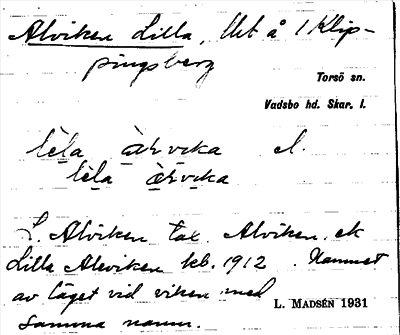 Alviken Lilla, Utå / Klip-
pingsberg
Torsö sn.
Vadsbo hd. Skar. l.
lèla àrvika el.
lèla àrvika
L. Alviken tax. Alviken, ek
Lilla Aleviken kb. 1912. Namnet
av läget vid viken med
L. MADSÉN 1931
samma namn.